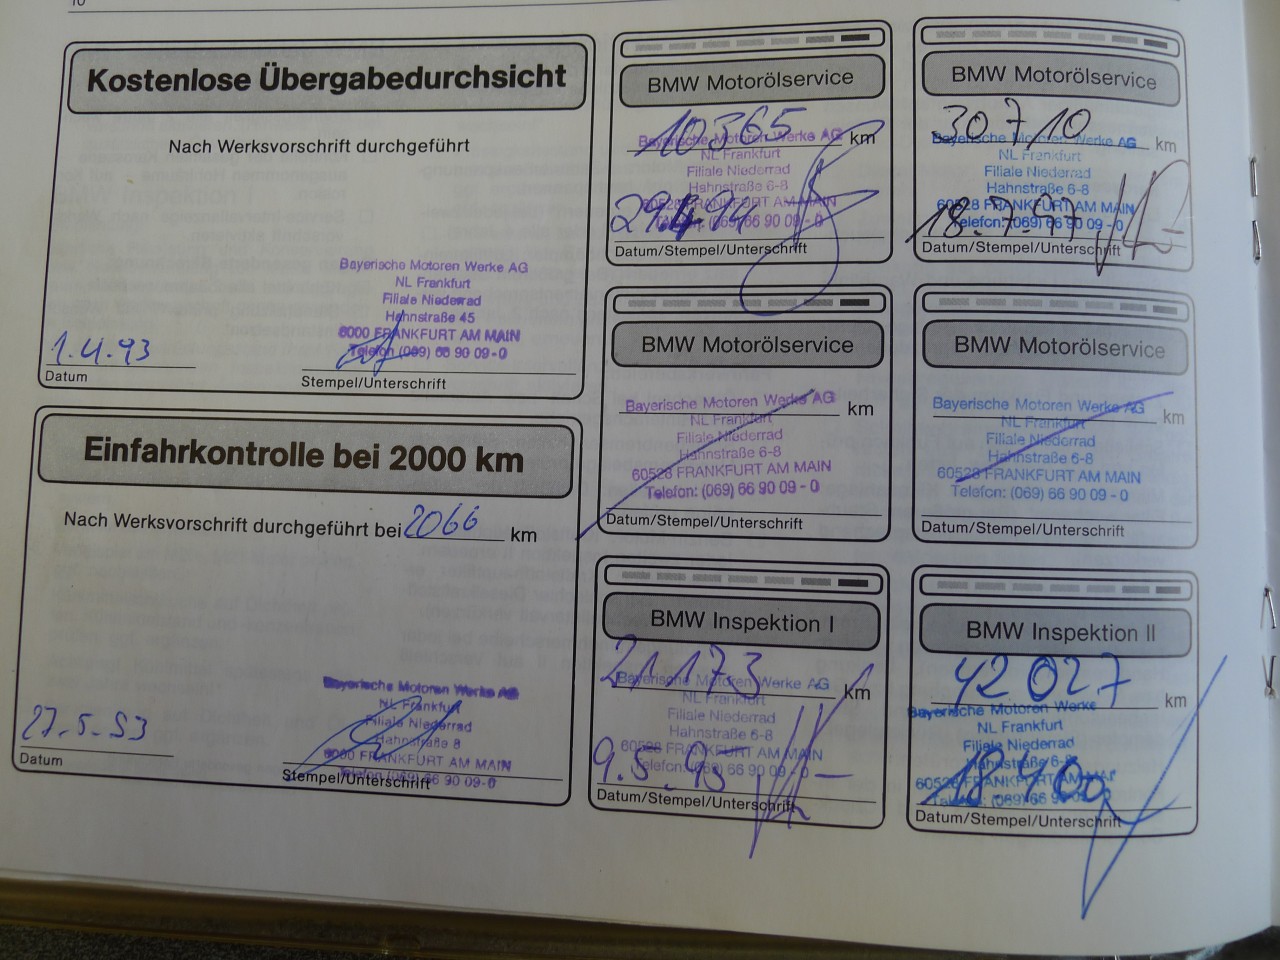 10
Kostenlose Übergabedurchsicht
Nach Werksvorschrift durchgeführt
Bayerische Motoren Werke AG
NL Frankfurt
Filiale Niederrad
Hahnstraße 45
6000 FRANKFURT AM MAIN
Telefon (069) 66 90 09-0
1.4.93
Datum
Stempel/Unterschrift
Einfahrkontrolle bei 2000 km
Nach Werksvorschrift durchgeführt bei 2066 km
Bayerische Motoren Werke AG
NL Frankfurt
Filiale Niederrad
Hahnstraße 8
6000 FRANKFURT AM MAIN
Telefon (069) 66 90 09-0
27.5.93
Datum
Stempel/Unterschrift
BMW Motorölservice
10365 km
Bayerische Motoren Werke AG
NL Frankfurt
Filiale Niederrad
Hahnstraße 6-8
60528 FRANKFURT AM MAIN
Telefon: (069) 66 90 09 - 0
Datum/Stempel/Unterschrift
BMW Motorölservice
30710 km
Bayerische Motoren Werke AG
NL Frankfurt
Filiale Niederrad
Hahnstraße 6-8
60528 FRANKFURT AM MAIN
Telefon: (069) 66 90 09 - 0
18.7.97
Datum/Stempel/Unterschrift
BMW Motorölservice
km
Bayerische Motoren Werke AG
NL Frankfurt
Filiale Niederrad
Hahnstraße 6-8
60528 FRANKFURT AM MAIN
Telefon: (069) 66 90 09 - 0
Datum/Stempel/Unterschrift
BMW Motorölservice
km
Bayerische Motoren Werke AG
NL Frankfurt
Filiale Niederrad
Hahnstraße 6-8
60528 FRANKFURT AM MAIN
Telefon: (069) 66 90 09 - 0
Datum/Stempel/Unterschrift
BMW Inspektion I
21173 km
Bayerische Motoren Werke AG
NL Frankfurt
Filiale Niederrad
Hahnstraße 6-8
60528 FRANKFURT AM MAIN
Telefon: (069) 66 90 09 - 0
9.5.95
Datum/Stempel/Unterschrift
BMW Inspektion II
42027 km
Bayerische Motoren Werke
NL Frankfurt
Filiale Niederrad
Hahnstraße 6-8
60528 FRANKFURT AM MAI
Datum/Stempel/Unterschrift